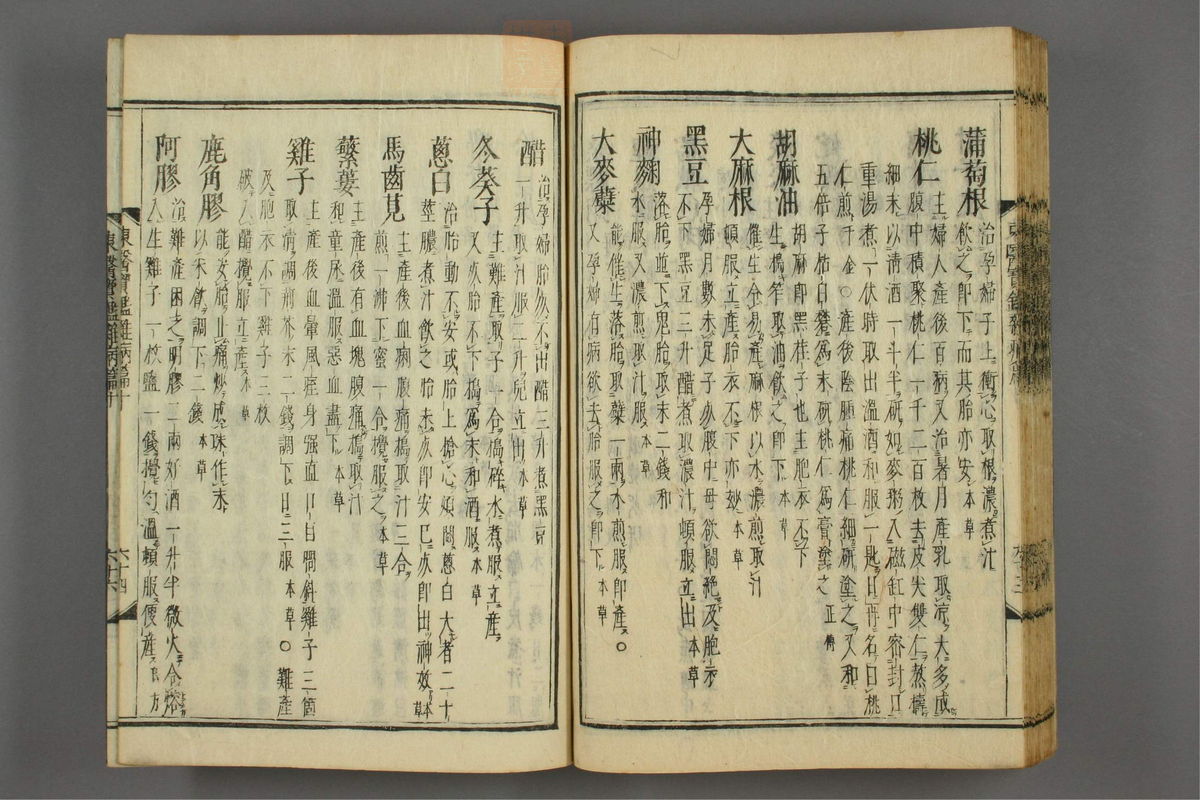 蒲萄根治孕婦子上衝心取根濃煮汁
飮之卽下而其胎亦安本草
桃仁主婦人產後百病又治暑月產乳取涼大多成
腹中積聚桃仁一千二百枚去皮尖雙仁熬擣
細末以清酒一斗半硏如麥粥入磁缸中密封口
重湯煮一伏時取出溫酒和服一匙日再名曰桃
仁煎千金○產後陰腫痛桃仁細硏塗之又和
五倍子枯白礬爲末硏桃仁爲膏塗之正傳
胡麻油胡麻卽黑荏子也主胞衣不下
生擣笮取油飮之卽下本草
大麻根催生令易產麻根以水濃煎取汁
頓服立產胎衣不下亦妙本草
黑豆孕婦月數未足子死腹中母欲悶絶及胞衣
不下黑豆三升醋煮取濃汁頓服立出本草
神麴落胎並下鬼胎取末二錢和
水服又濃煎取汁服本草
大麥蘖能催生落胎取蘖一兩水煎服卽產○
又孕婦有病欲去胎服之卽下本草
醋治孕婦胎死不出醋三升煮黑豆
一升取汁服二升兒立出本草
冬葵子主難產取一合擣碎水煮服立產
又死胎不下擣爲末和酒服本草
蔥白治胎動不安或胎上搶心煩悶蔥白大者二十
莖膿煮汁飮之胎未死卽安已死卽出神效本草
馬齒莧主產後血痢腹痛擣取汁三合
煎一沸下蜜一合攪服之本草
蘩蔞主產後有血塊腹痛擣取汁
和童尿溫服惡血盡下本草
雞子主產後血暈風痓身强直口目喎斜雞子三箇
取淸調荊芥末二錢調下日三服本草○難產
及胞衣不下雞子三枚
破入醋攪服立產本草
鹿角膠能安胎止痛炒成珠作末
以米飮調下二錢本草
阿膠治難產困乏明膠二兩好酒一升半微火令熔
入生雞子一枚鹽一錢攪勻溫頓服便產良方
東醫寶鑑雜病篇十
六十四